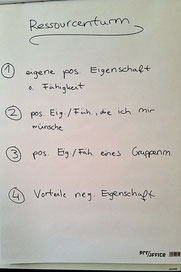 Ressourcenturm
① eigene pos. Eigenschaft
o. Fähigkeit
② pos. Eig./Fäh., die ich mir
wünsche
③ pos. Eig./Fäh. eines Gruppenm.
④ Vorteile neg. Eigenschaft
pro/office